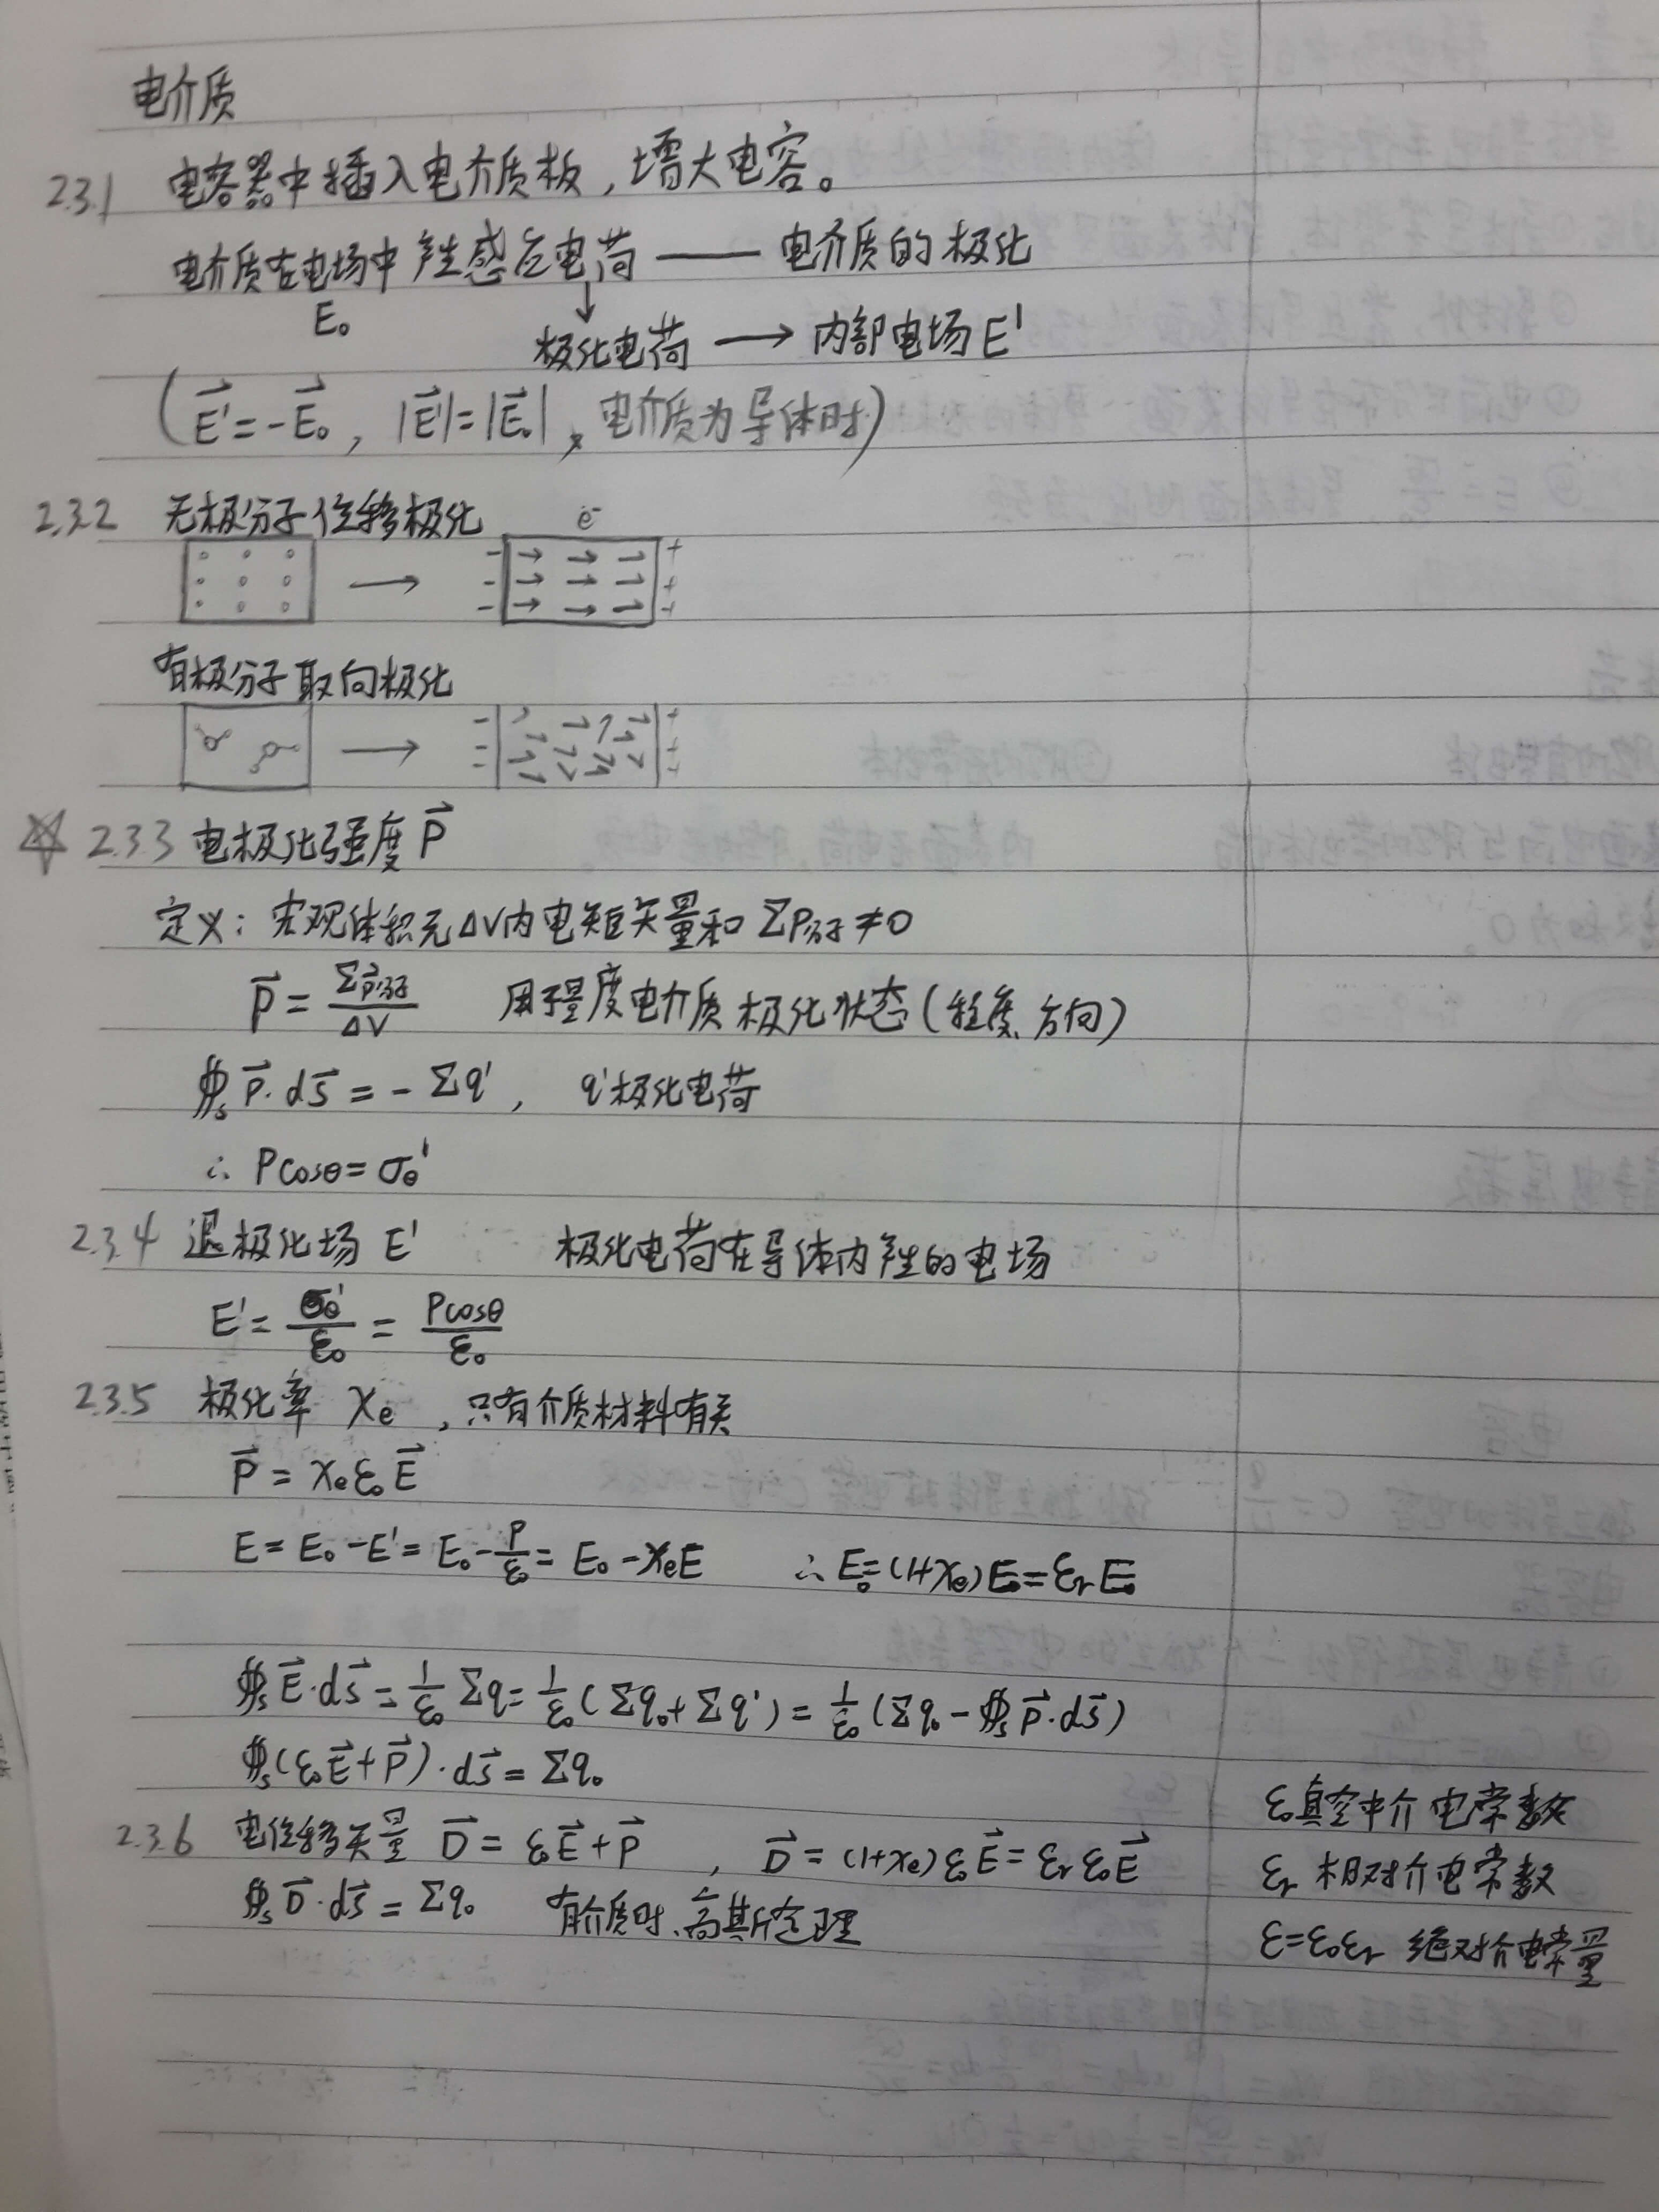 电介质
2.3.1 电容器中插入电介质板，增大电容。
电介质在电场中产生感应电荷 —— 电介质的极化
E₀ ↓
极化电荷 → 内部电场E'
(E⃗'=-E⃗₀, |E⃗'|=|E⃗₀|, 电介质为导体时)
2.3.2 无极分子位移极化
e⁻
- → → → +
→ - → → → +
- → → → +
有极分子取向极化
- +
→ - +
- +
☆ 2.3.3 电极化强度 P⃗
定义：宏观体积元ΔV内电矩矢量和 ΣP分子≠0
P⃗ = Σp⃗分子/ΔV 用于量度电介质极化状态(程度、方向)
∯ₛ P⃗·dS⃗ = -Σq', q'极化电荷
∴ Pcosθ=σₑ'
2.3.4 退极化场 E' 极化电荷在导体内产生的电场
E'= σₑ'/ε₀ = Pcosθ/ε₀
2.3.5 极化率 χₑ ,只有介质材料有关
P⃗ = χₑε₀E⃗
E = E₀-E' = E₀-P/ε₀ = E₀-χₑE ∴ E₀=(1+χₑ)E₀=εᵣE₀
∯ₛ E⃗·dS⃗ = 1/ε₀ Σq = 1/ε₀ (Σq₀+Σq') = 1/ε₀ (Σq₀-∯ₛ P⃗·dS⃗)
∯ₛ(ε₀E⃗+P⃗)·dS⃗ = Σq₀
2.3.6 电位移矢量 D⃗ = ε₀E⃗+P⃗ , D⃗ = (1+χₑ)ε₀E⃗ = εᵣε₀E⃗
∯ₛ D⃗·dS⃗ = Σq₀ 有介质时、高斯定理
ε₀真空中介电常数
εᵣ 相对介电常数
ε=ε₀εᵣ 绝对介电常量